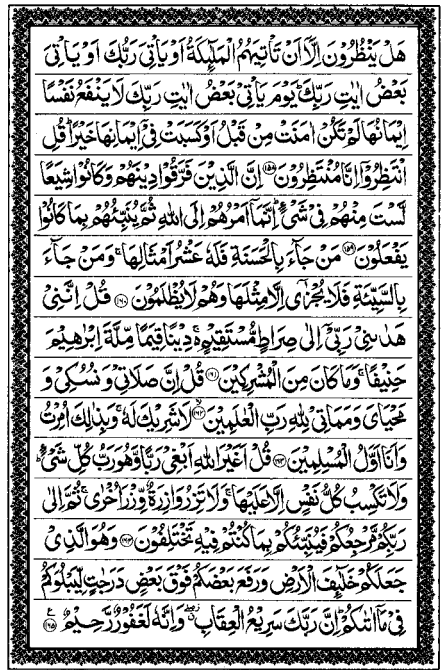 هَلْ يَنْظُرُوْنَ اِلَّاۤ اَنْ تَاْتِيَهُمُ الْمَلٰٓئِكَةُ اَوْ يَاْتِيَ رَبُّكَ اَوْ يَاْتِيَ
بَعْضُ اٰيٰتِ رَبِّكَ ؕ يَوْمَ يَاْتِيْ بَعْضُ اٰيٰتِ رَبِّكَ لَا يَنْفَعُ نَفْسًا
اِيْمَانُهَا لَمْ تَكُنْ اٰمَنَتْ مِنْ قَبْلُ اَوْ كَسَبَتْ فِيْۤ اِيْمَانِهَا خَيْرًا ؕ قُلِ
انْتَظِرُوْۤا اِنَّا مُنْتَظِرُوْنَ ﴿۱۵۸﴾ اِنَّ الَّذِيْنَ فَرَّقُوْا دِيْنَهُمْ وَكَانُوْا شِيَعًا
لَّسْتَ مِنْهُمْ فِيْ شَيْءٍ ؕ اِنَّمَاۤ اَمْرُهُمْ اِلَى اللّٰهِ ثُمَّ يُنَبِّئُهُمْ بِمَا كَانُوْا
يَفْعَلُوْنَ ﴿۱۵۹﴾ مَنْ جَآءَ بِالْحَسَنَةِ فَلَهٗ عَشْرُ اَمْثَالِهَا ۚ وَمَنْ جَآءَ
بِالسَّيِّئَةِ فَلَا يُجْزٰۤى اِلَّا مِثْلَهَا وَهُمْ لَا يُظْلَمُوْنَ ﴿۱۶۰﴾ قُلْ اِنَّنِيْ
هَدٰىنِيْ رَبِّيْۤ اِلٰى صِرَاطٍ مُّسْتَقِيْمٍ ۚ دِيْنًا قِيَمًا مِّلَّةَ اِبْرٰهِيْمَ
حَنِيْفًا ۚ وَمَا كَانَ مِنَ الْمُشْرِكِيْنَ ﴿۱۶۱﴾ قُلْ اِنَّ صَلَاتِيْ وَنُسُكِيْ وَ
مَحْيَايَ وَمَمَاتِيْ لِلّٰهِ رَبِّ الْعٰلَمِيْنَ ﴿۱۶۲﴾ۙ لَا شَرِيْكَ لَهٗ ۚ وَبِذٰلِكَ اُمِرْتُ
وَاَنَا اَوَّلُ الْمُسْلِمِيْنَ ﴿۱۶۳﴾ قُلْ اَغَيْرَ اللّٰهِ اَبْغِيْ رَبًّا وَّهُوَ رَبُّ كُلِّ شَيْءٍ ؕ
وَلَا تَكْسِبُ كُلُّ نَفْسٍ اِلَّا عَلَيْهَا ۚ وَلَا تَزِرُ وَازِرَةٌ وِّزْرَ اُخْرٰى ۚ ثُمَّ اِلٰى
رَبِّكُمْ مَّرْجِعُكُمْ فَيُنَبِّئُكُمْ بِمَا كُنْتُمْ فِيْهِ تَخْتَلِفُوْنَ ﴿۱۶۴﴾ وَهُوَ الَّذِيْ
جَعَلَكُمْ خَلٰٓئِفَ الْاَرْضِ وَرَفَعَ بَعْضَكُمْ فَوْقَ بَعْضٍ دَرَجٰتٍ لِّيَبْلُوَكُمْ
فِيْ مَاۤ اٰتٰىكُمْ ؕ اِنَّ رَبَّكَ سَرِيْعُ الْعِقَابِ ۖ وَاِنَّهٗ لَغَفُوْرٌ رَّحِيْمٌ ﴿۱۶۵﴾